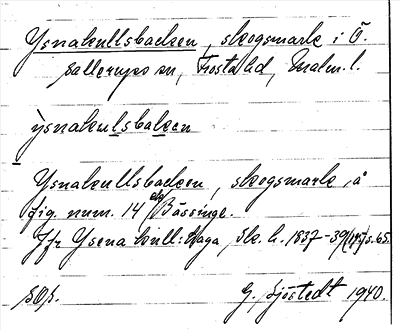 Ysnakullsbacken, skogsmark i Ö.
Sallerups sn, Frosta hd, Malm. l.
ỳsnakulsbaken
Ysnakullsbacken, skogsmark, å
fig. num. 14 å Bässinge.
Jfr Ysena kull: Haga, Sk. h. 1837-39 s. 65.
G. Sjöstedt 1940.